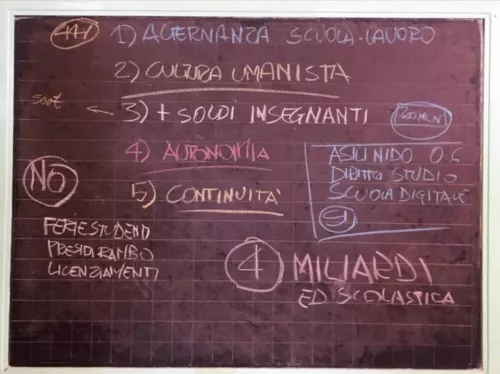 1) ALTERNANZA SCUOLA-LAVORO
2) CULTURA UMANISTA
500€ ← 3) + SOLDI INSEGNANTI
4) AUTONOMIA
5) CONTINUITA'
ASILI NIDO 0.6
DIRITTO STUDIO
SCUOLA DIGITALE
SI
NO
FERIE STUDENTI
PRESIDI RAMBO
LICENZIAMENTI
4 MILIARDI
ED SCOLASTICA